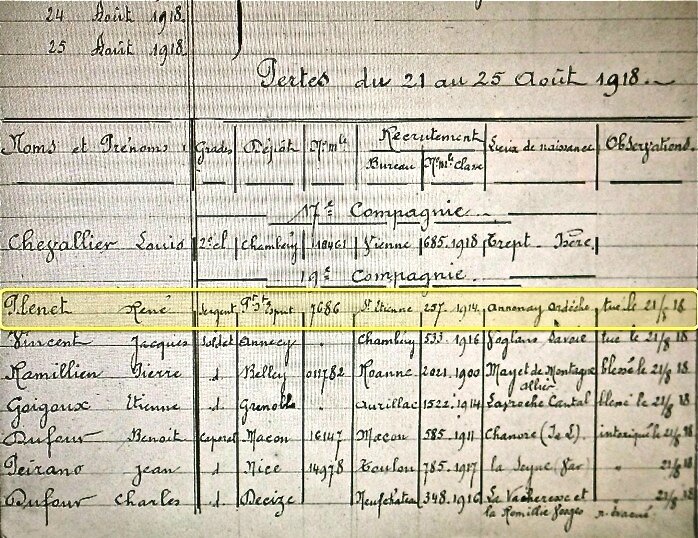 24 Août 1918.
25 Août 1918.
Pertes du 21 au 25 Août 1918.
Noms et Prénoms. Grades Dépôt Nº mle Recrutement Lieux de naissance Observations.
Bureau Nº mle Classe
17e Compagnie
Chevallier Louis 2e cl. Chambéry 10461 Vienne 685.1918 Trept. Isère
19e Compagnie
Plenet René Sergent Pt St Esprit 7686 St Etienne 257.1914 Annonay Ardèche tué le 21/8 18
Vincent Jacques soldat Annecy . Chambéry 533.1916 Voglans Savoie tué le 21/8 18
Ramillien Pierre d. Belley 011782 Roanne 2021.1900 Mayet de Montagne blessé le 21/8 18
Allier
Goigoux Etienne d. Grenoble . Aurillac 1522.1914 Laroche Cantal blessé le 21/8 18
Dufour Benoit Caporal Macon 16147 Macon 585.1911 Chanore intoxiqué le 21/8 18
Peirano Jean d Nice 14978 Toulon 785.1917 la Seyne (Var) " 21/8 18
Dufour Charles d Decize Neufchâteau 348.1916 La Vacheresse et " 21/8 18
la Rouillie Vosges n. évacué